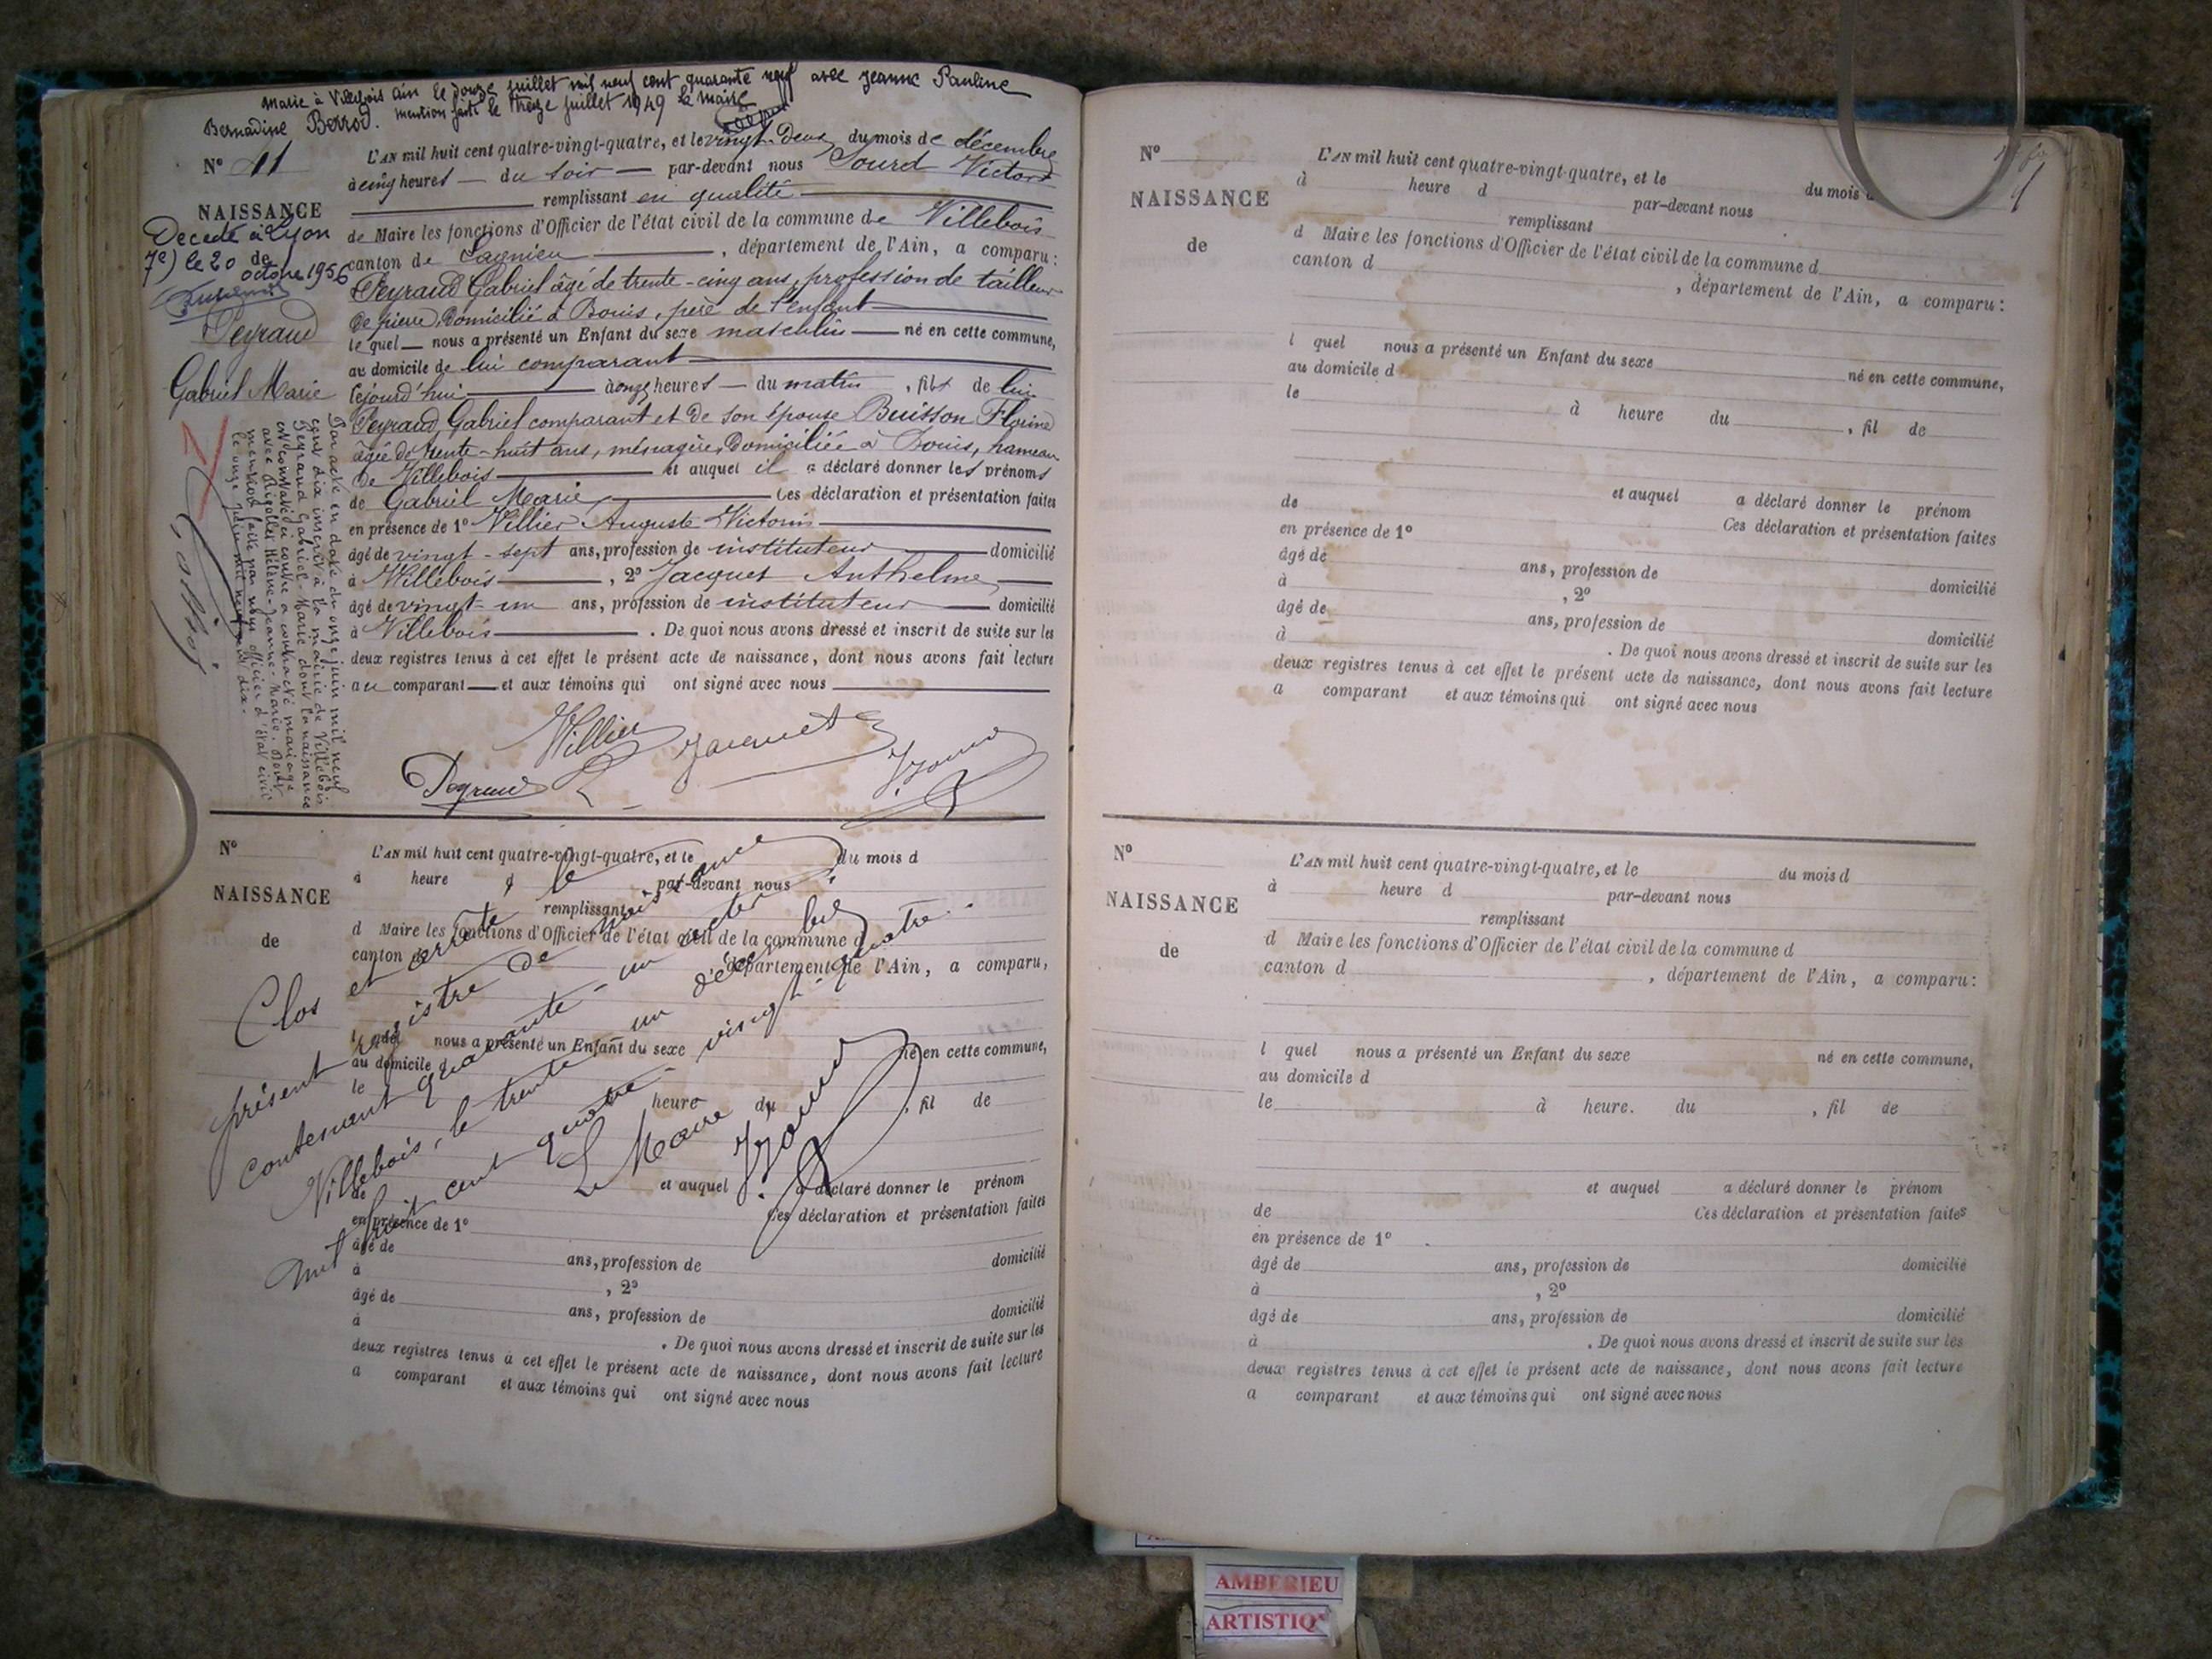 Marié à Villebois Ain le douze juillet mil neuf cent quarante neuf avec Jeanne Pauline
Bernadine Berrod. mention faite le treize juillet 1949 le maire
N° 41
NAISSANCE
de
Décédé à Lyon
7e) le 20
octobre 1956
Peyraud
Gabriel Marie
L'AN mil huit cent quatre-vingt-quatre, et le vingt-deux du mois de décembre
à cinq heures du soir par-devant nous Sourd Victor
remplissant en qualité
de Maire les fonctions d'Officier de l'état civil de la commune de Villebois
canton de Lagnieu , département de l'Ain, a comparu:
Peyraud Gabriel âgé de trente-cinq ans, profession de tailleur
de pierre, domicilié à Bouis, père de l'enfant
lequel nous a présenté un Enfant du sexe masculin né en cette commune,
au domicile de lui comparant
cejourd'hui à onze heures du matin , fils de lui
Peyraud Gabriel comparant et de son épouse Buisson Florine
âgée de trente-huit ans, ménagère, domiciliée à Bouis, hameau
de Villebois et auquel il a déclaré donner les prénoms
de Gabriel Marie Ces déclaration et présentation faites
en présence de 1° Villier Auguste Victorin
âgé de vingt-sept ans, profession de instituteur domicilié
à Villebois , 2° Jacquet Anthelme
âgé de vingt-un ans, profession de instituteur domicilié
à Villebois . De quoi nous avons dressé et inscrit de suite sur les
deux registres tenus à cet effet le présent acte de naissance, dont nous avons fait lecture
au comparant et aux témoins qui ont signé avec nous
Par acte en date du onze juin mil neuf
cent dix inscrit à la mairie de Villebois
Peyraud Gabriel Marie dont la naissance
est constatée ci contre a contracté mariage
avec Rigollet Hélène-Jeanne-Marie. Dont
mention faite par nous officier d'état civil
le onze juin mil neuf cent dix.
Villier Jacquet
Peyraud V. Sourd
N°
NAISSANCE
de
L'AN mil huit cent quatre-vingt-quatre, et le du mois d
à heure d par-devant nous
remplissant
d Maire les fonctions d'Officier de l'état civil de la commune d
canton d , département de l'Ain, a comparu,
l quel nous a présenté un Enfant du sexe né en cette commune,
au domicile d
le heure du , fil de
et auquel a déclaré donner le prénom
de Ces déclaration et présentation faites
en présence de 1°
âgé de ans, profession de domicilié
à , 2°
âgé de ans, profession de domicilié
à . De quoi nous avons dressé et inscrit de suite sur les
deux registres tenus à cet effet le présent acte de naissance, dont nous avons fait lecture
a comparant et aux témoins qui ont signé avec nous
Clos et arrêté le
présent registre de naissance
contenant quarante-un actes
Villebois, le trente un décembre
mil huit cent quatre-vingt-quatre.
Le Maire
V. Sourd
N°
NAISSANCE
de
L'AN mil huit cent quatre-vingt-quatre, et le du mois d
à heure d par-devant nous
remplissant
d Maire les fonctions d'Officier de l'état civil de la commune d
canton d
, département de l'Ain, a comparu:
l quel nous a présenté un Enfant du sexe né en cette commune,
au domicile d
le à heure du , fil de
et auquel a déclaré donner le prénom
de Ces déclaration et présentation faites
en présence de 1°
âgé de ans, profession de domicilié
à , 2°
âgé de ans, profession de domicilié
à . De quoi nous avons dressé et inscrit de suite sur les
deux registres tenus à cet effet le présent acte de naissance, dont nous avons fait lecture
a comparant et aux témoins qui ont signé avec nous
N°
NAISSANCE
de
L'AN mil huit cent quatre-vingt-quatre, et le du mois d
à heure d par-devant nous
remplissant
d Maire les fonctions d'Officier de l'état civil de la commune d
canton d , département de l'Ain, a comparu:
l quel nous a présenté un Enfant du sexe né en cette commune,
au domicile d
le à heure. du , fil de
et auquel a déclaré donner le prénom
de Ces déclaration et présentation faites
en présence de 1°
âgé de ans, profession de domicilié
à , 2°
âgé de ans, profession de domicilié
à . De quoi nous avons dressé et inscrit de suite sur les
deux registres tenus à cet effet le présent acte de naissance, dont nous avons fait lecture
a comparant et aux témoins qui ont signé avec nous
AMBERIEU
ARTISTIQ